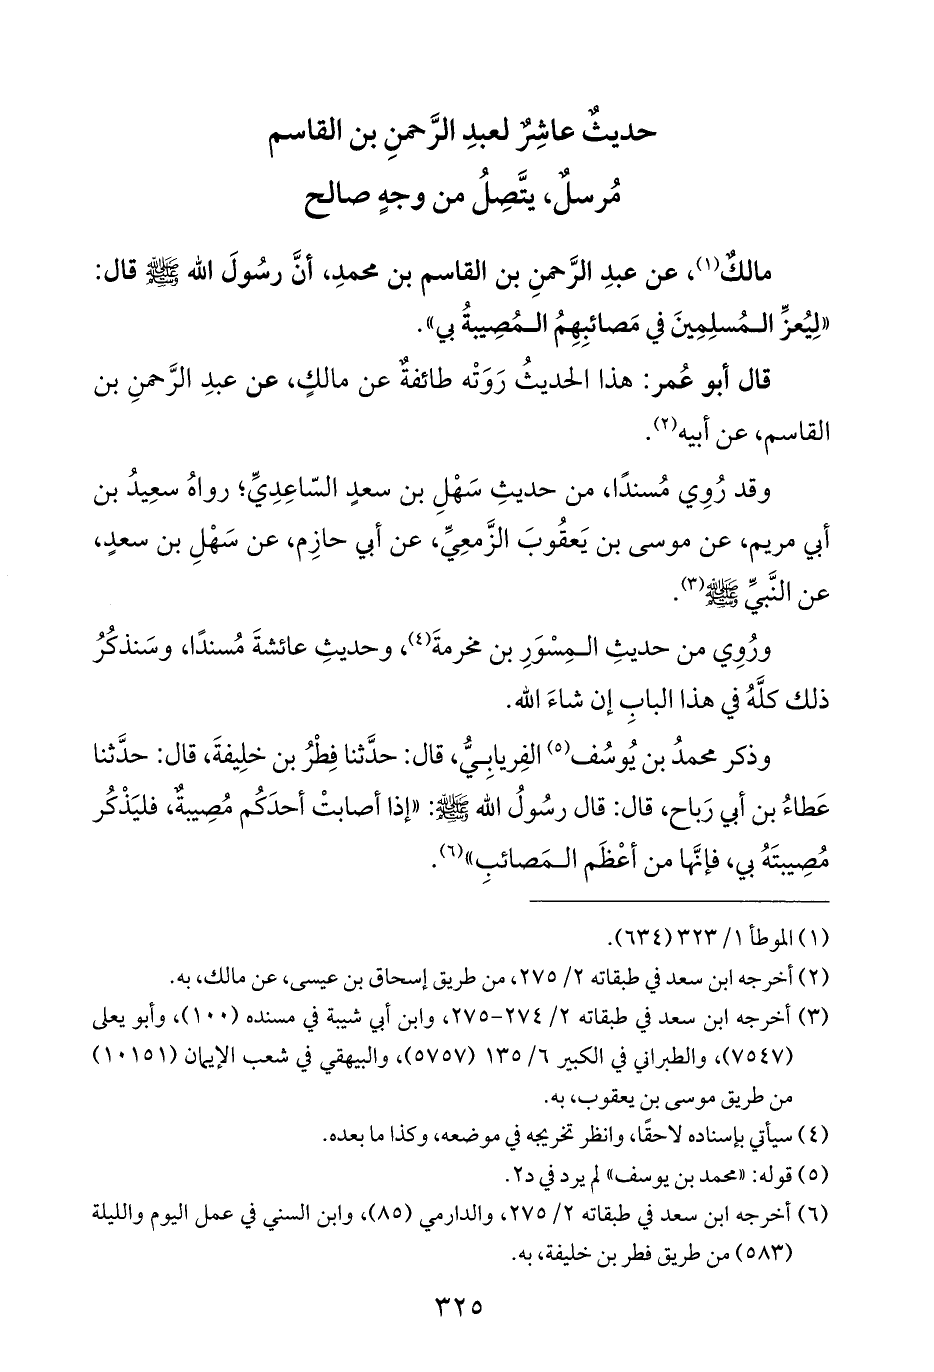 حديثٌ عاشِرٌ لعبدِ الرَّحمنِ بن القاسم
مُرسلٌ، يتَّصِلُ من وجهٍ صالح
مالكٌ(١)، عن عبدِ الرَّحمنِ بن القاسم بن محمدِ، أنَّ رسُولَ الله ﷺ قال:
«لِيُعزِّ الـمُسلِمِينَ في مَصائبِهِمُ الـمُصِيبةُ بي».
قال أبو عُمر: هذا الحديثُ رَوَتْه طائفةٌ عن مالكٍ، عن عبدِ الرَّحمنِ بن
القاسم، عن أبيه(٢).
وقد رُوِي مُسندًا، من حديثِ سَهْلِ بن سعدٍ السّاعِدِيِّ؛ رواهُ سعِيدُ بن
أبي مريم، عن موسى بن يَعقُوبَ الزَّمعِيِّ، عن أبي حازِم، عن سَهْلِ بن سعدٍ،
عن النَّبيِّ ﷺ(٣).
ورُوِي من حديثِ الـمِسْوَرِ بن مخرمةَ(٤)، وحديثِ عائشةَ مُسندًا، وسَنذكُرُ
ذلك كلَّهُ في هذا البابِ إن شاءَ الله.
وذكر محمدُ بن يُوسُف(٥) الفِريابِيُّ، قال: حدَّثنا فِطْرُ بن خلِيفةَ، قال: حدَّثنا
عَطاءُ بن أبي رَباح، قال: قال رسُولُ الله ﷺ: «إذا أصابتْ أحدَكُم مُصِيبةٌ، فليَذْكُر
مُصِيبتَهُ بي، فإنَّها من أعْظَم الـمَصائبِ»(٦).
(١) الموطأ ١/ ٣٢٣ (٦٣٤).
(٢) أخرجه ابن سعد في طبقاته ٢/ ٢٧٥، من طريق إسحاق بن عيسى، عن مالك، به.
(٣) أخرجه ابن سعد في طبقاته ٢/ ٢٧٤-٢٧٥، وابن أبي شيبة في مسنده (١٠٠)، وأبو يعلى
(٧٥٤٧)، والطبراني في الكبير ٦/ ١٣٥ (٥٧٥٧)، والبيهقي في شعب الإيمان (١٠١٥١)
من طريق موسى بن يعقوب، به.
(٤) سيأتي بإسناده لاحقًا، وانظر تخريجه في موضعه، وكذا ما بعده.
(٥) قوله: «محمد بن يوسف» لم يرد في د٢.
(٦) أخرجه ابن سعد في طبقاته ٢/ ٢٧٥، والدارمي (٨٥)، وابن السني في عمل اليوم والليلة
(٥٨٣) من طريق فطر بن خليفة، به.
٣٢٥